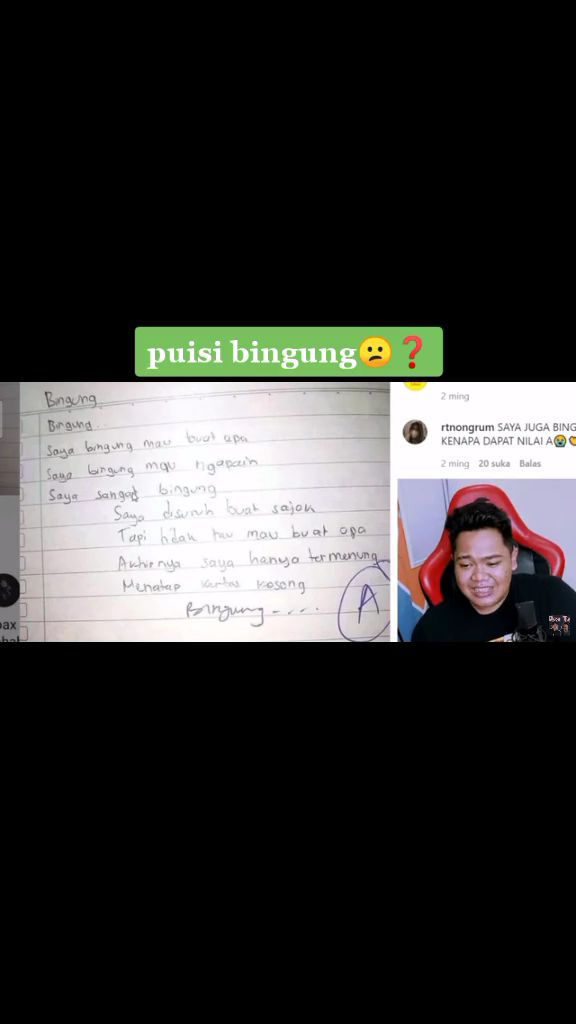 puisi bingung😕❓
Bingung
Bingung..
Saya bingung mau buat apa
Saya bingung mau ngapain
Saya sangat bingung
Saya disuruh buat sajak
Tapi tidak tau mau buat apa
Akhirnya saya hanya termenung
Menatap kertas kosong
Bingung....
A
2 ming
rtnongrum SAYA JUGA BING
KENAPA DAPAT NILAI A😭
2 ming 20 suka Balas